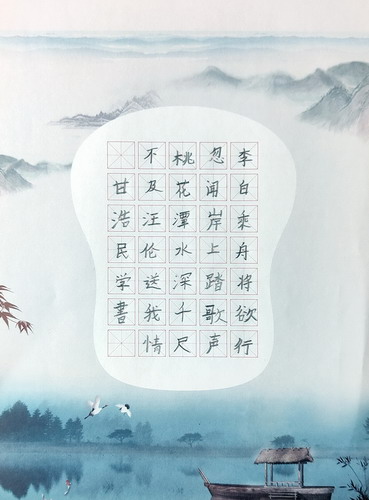 李白乘舟将欲行
忽闻岸上踏歌声
桃花潭水深千尺
不及汪伦送我情
甘浩民学書